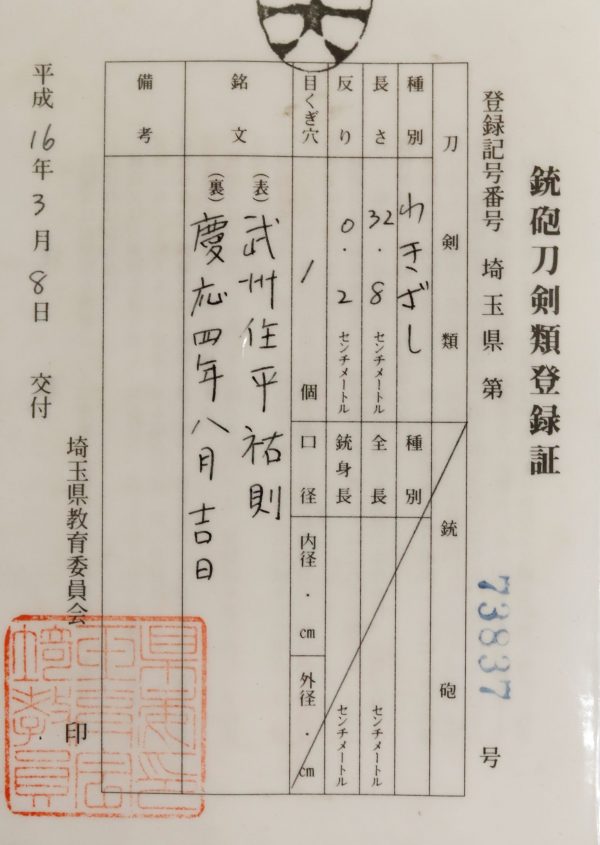 銃砲刀剣類登録証
登録記号番号 埼玉県 第 73837 号
刀剣類
種別 わきざし
長さ 32.8 センチメートル
反り 0.2 センチメートル
目くぎ穴 1 個
銃砲
種別
全長 センチメートル
銃身長 センチメートル
口径 内径 . cm 外径 . cm
銘文
(表) 武州住平祐則
(裏) 慶応四年八月吉日
備考
平成16年3月8日 交付
埼玉県教育委員会 印